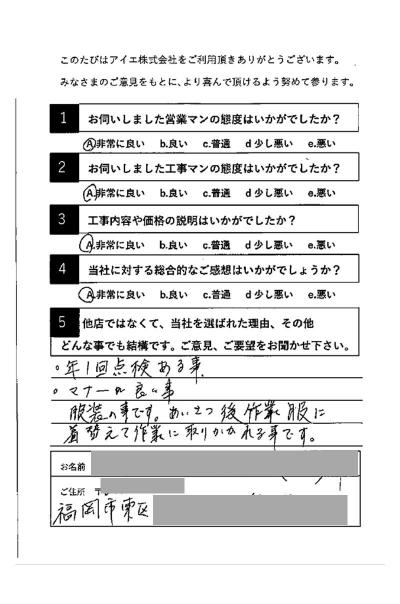 このたびはアイエ株式会社をご利用頂きありがとうございます。
みなさまのご意見をもとに、より喜んで頂けるよう努めて参ります。
1 お伺いしました営業マンの態度はいかがでしたか？
A.非常に良い b.良い c.普通 d 少し悪い e.悪い
2 お伺いしました工事マンの態度はいかがでしたか？
A.非常に良い b.良い c.普通 d 少し悪い e.悪い
3 工事内容や価格の説明はいかがでしたか？
A.非常に良い b.良い c.普通 d 少し悪い e.悪い
4 当社に対する総合的なご感想はいかがでしょうか？
A.非常に良い b.良い c.普通 d 少し悪い e.悪い
5 他店ではなくて、当社を選ばれた理由、その他
どんな事でも結構です。ご意見、ご要望をお聞かせ下さい。
。年1回点検ある事
。マナーの良い事
服装の事です。あいさつ後作業服に
着替えて作業に取りかかれる事です。
お名前
ご住所 〒
福岡市東区